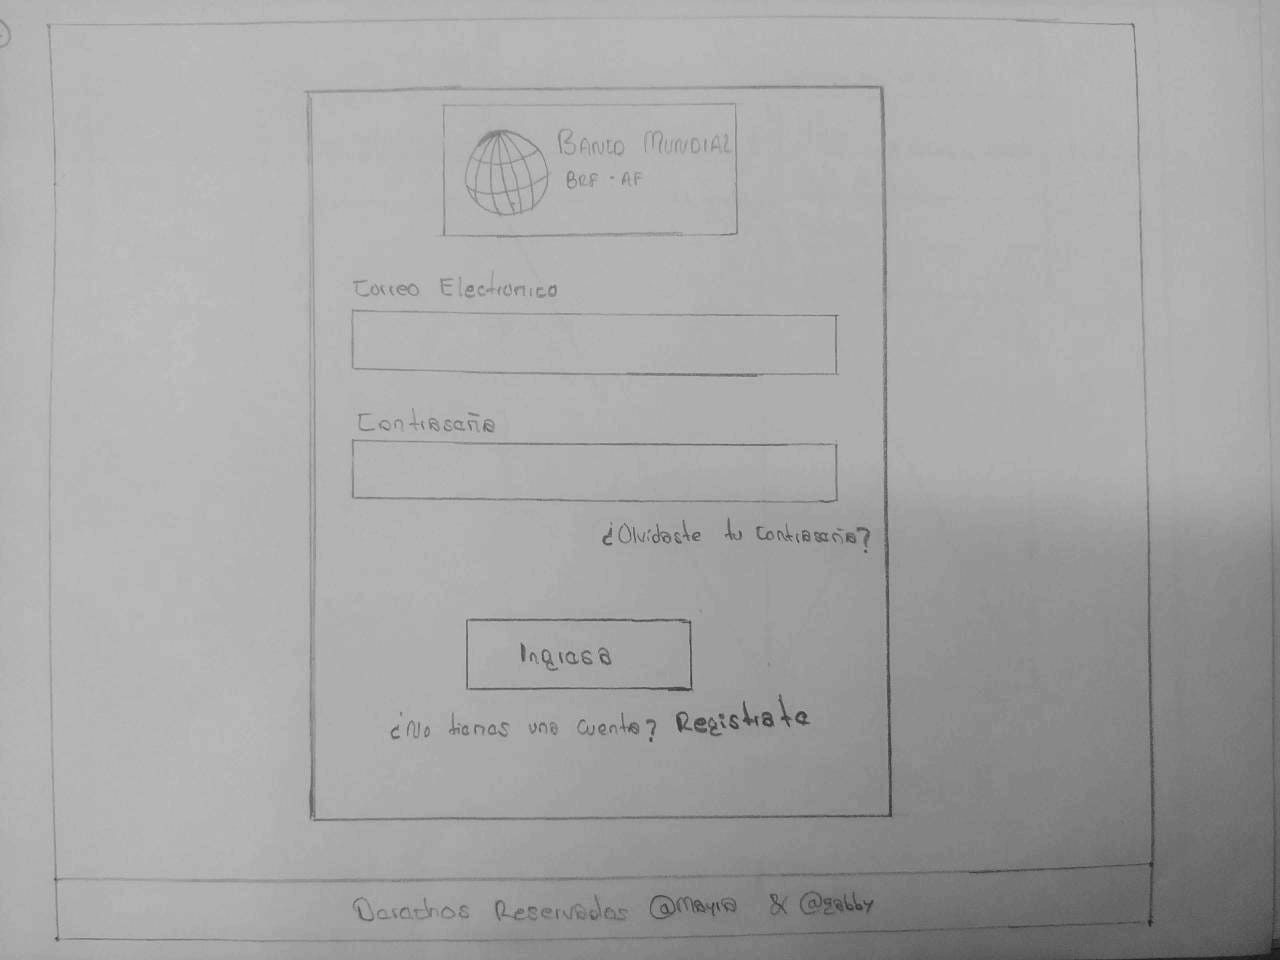 BANCO MUNDIAL
BRF - AF
Correo Electronico
Contraseña
¿Olvidaste tu contraseña?
Ingresa
¿No tienes una cuenta? Registrate
Derechos Reservados @mayra & @gabby